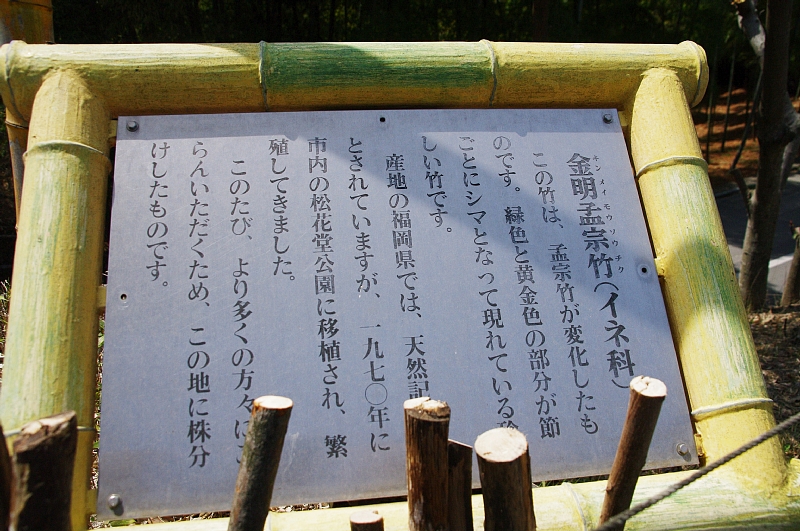 金明孟宗竹(イネ科)
キンメイモウソウチク
この竹は、孟宗竹が変化したも
のです。緑色と黄金色の部分が節
ごとにシマとなって現れている
しい竹です。
産地の福岡県では、天然記
とされていますが、一九七〇年に
市内の松花堂公園に移植され、繁
殖してきました。
このたび、より多くの方々に
らんいただくため、この地に株分
けしたものです。